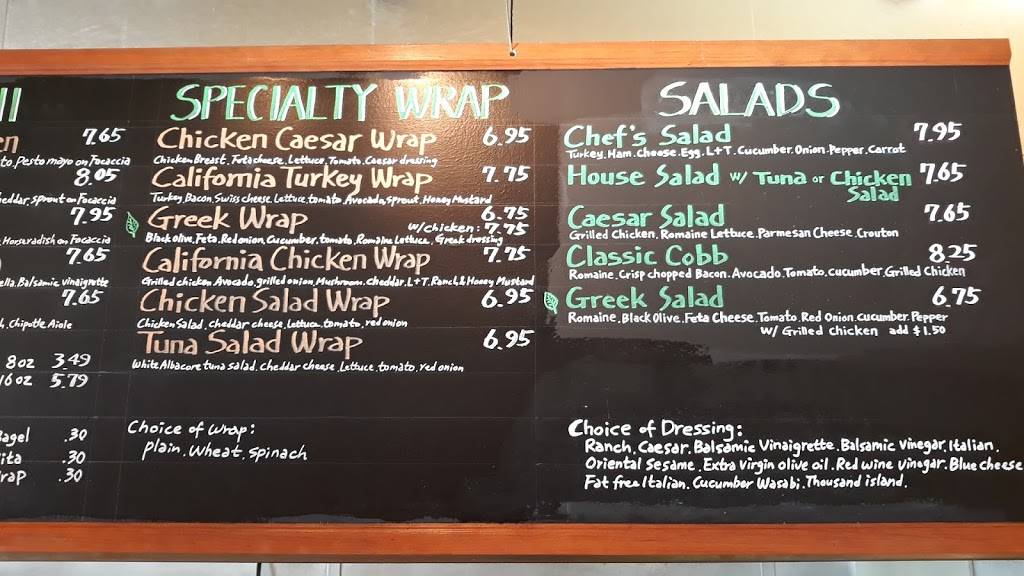 7.65
to, Pesto mayo on Focaccia
8.05
cheddar, sprout on Focaccia
7.95
Horseradish on Focaccia
7.65
Balsamic vinaigrette
7.65
Chipotle Aiole
8oz 3.49
16oz 5.79
Bagel .30
Pita .30
Wrap .30
SPECIALTY WRAP
Chicken Caesar Wrap 6.95
Chicken Breast, Fetacheese, Lettuce, Tomato, Caesar dressing
California Turkey Wrap 7.75
Turkey, Bacon, Swiss cheese, Lettuce, tomato, Avocado, sprout, Honey Mustard
Greek Wrap 6.75
w/chicken: 7.75
Black olive, Feta, Red onion, Cucumber, tomato, Romaine Lettuce, Greek dressing
California Chicken Wrap 7.75
Grilled chicken, Avocado, grilled onion, Mushroom, cheddar, L+T, Ranch, & Honey Mustard
Chicken Salad Wrap 6.95
Chicken Salad, cheddar cheese, Lettuce, tomato, red onion
Tuna Salad Wrap 6.95
White Albacore tuna salad, cheddar cheese, Lettuce, tomato, red onion
Choice of wrap:
plain, wheat, spinach
SALADS
Chef's Salad 7.95
Turkey, Ham, cheese, Egg, L+T, Cucumber, Onion, Pepper, Carrot
House Salad w/ Tuna or Chicken 7.65
Salad
Caesar Salad 7.65
Grilled Chicken, Romaine Lettuce, Parmesan Cheese, Crouton
Classic Cobb 8.25
Romaine, Crisp chopped Bacon, Avocado, Tomato, cucumber, Grilled Chicken
Greek Salad 6.75
Romaine, Black Olive, Feta Cheese, Tomato, Red Onion, cucumber, Pepper
w/ Grilled chicken add $1.50
Choice of Dressing:
Ranch, Caesar, Balsamic Vinaigrette, Balsamic vinegar, Italian,
Oriental Sesame, Extra Virgin olive oil, Red wine vinegar, Blue cheese
Fat free Italian, Cucumber Wasabi, Thousand island,